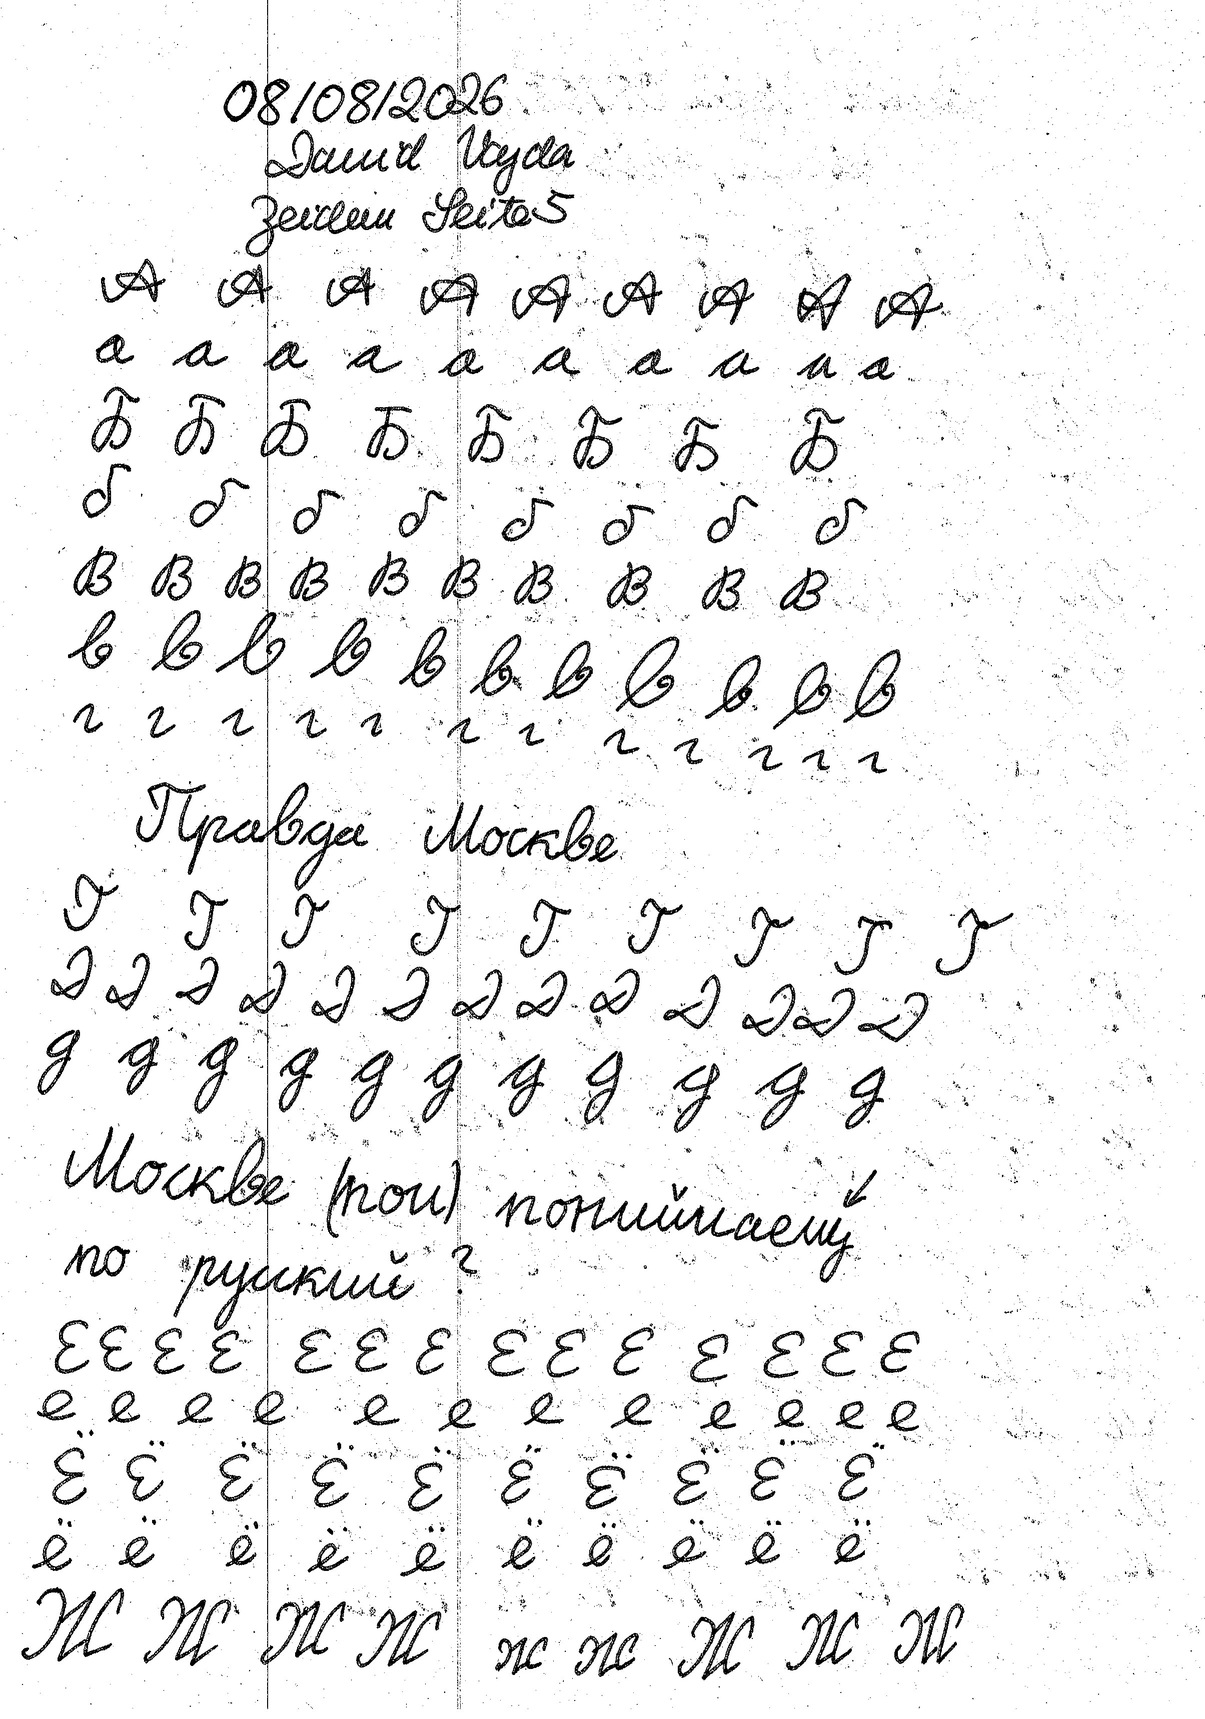 08/08/2026
David Vayda
Zeichen Seite 5
А А А А А А А А А
а а а а а а а а а а
Б Б Б Б Б Б Б Б
б б б б б б б б
В В В В В В В В В В
в в в в в в в в в в в
г г г г г г г г г г г г
Правда Москве
Г Г Г Г Г Г Г Г Г
Д Д Д Д Д Д Д Д Д Д Д Д Д
д д д д д д д д д д д
Москве (пои)
по руский ?
Е Е Е Е Е Е Е Е Е Е Е Е Е Е
е е е е е е е е е е е е
Ё Ё Ё Ё Ё Ё Ё Ё Ё Ё
ё ё ё ё ё ё ё ё ё ё
Ж Ж Ж Ж ж ж Ж Ж Ж